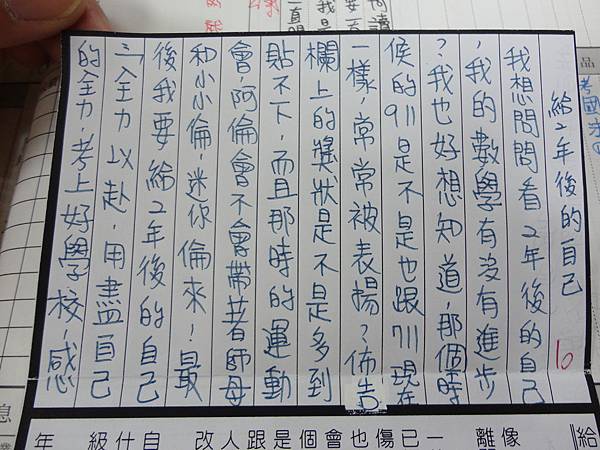 給2年後的自己
10
我想問問看2年後的自己
,我的數學有沒有進步
?我也好想知道,那個時
候的911是不是也跟711現在
一樣,常常被表揚?佈告
欄上的獎狀是不是多到
貼不下,而且那時的運動
會阿倫會不會帶著師母
和小小倫,迷你倫來!最
後我要給2年後的自己
全力以赴,用盡自己
的全力,考上好學校,感
品
息
給
像
離
一
已
傷
也
會
個
是
跟
人
改
自
什
級
年